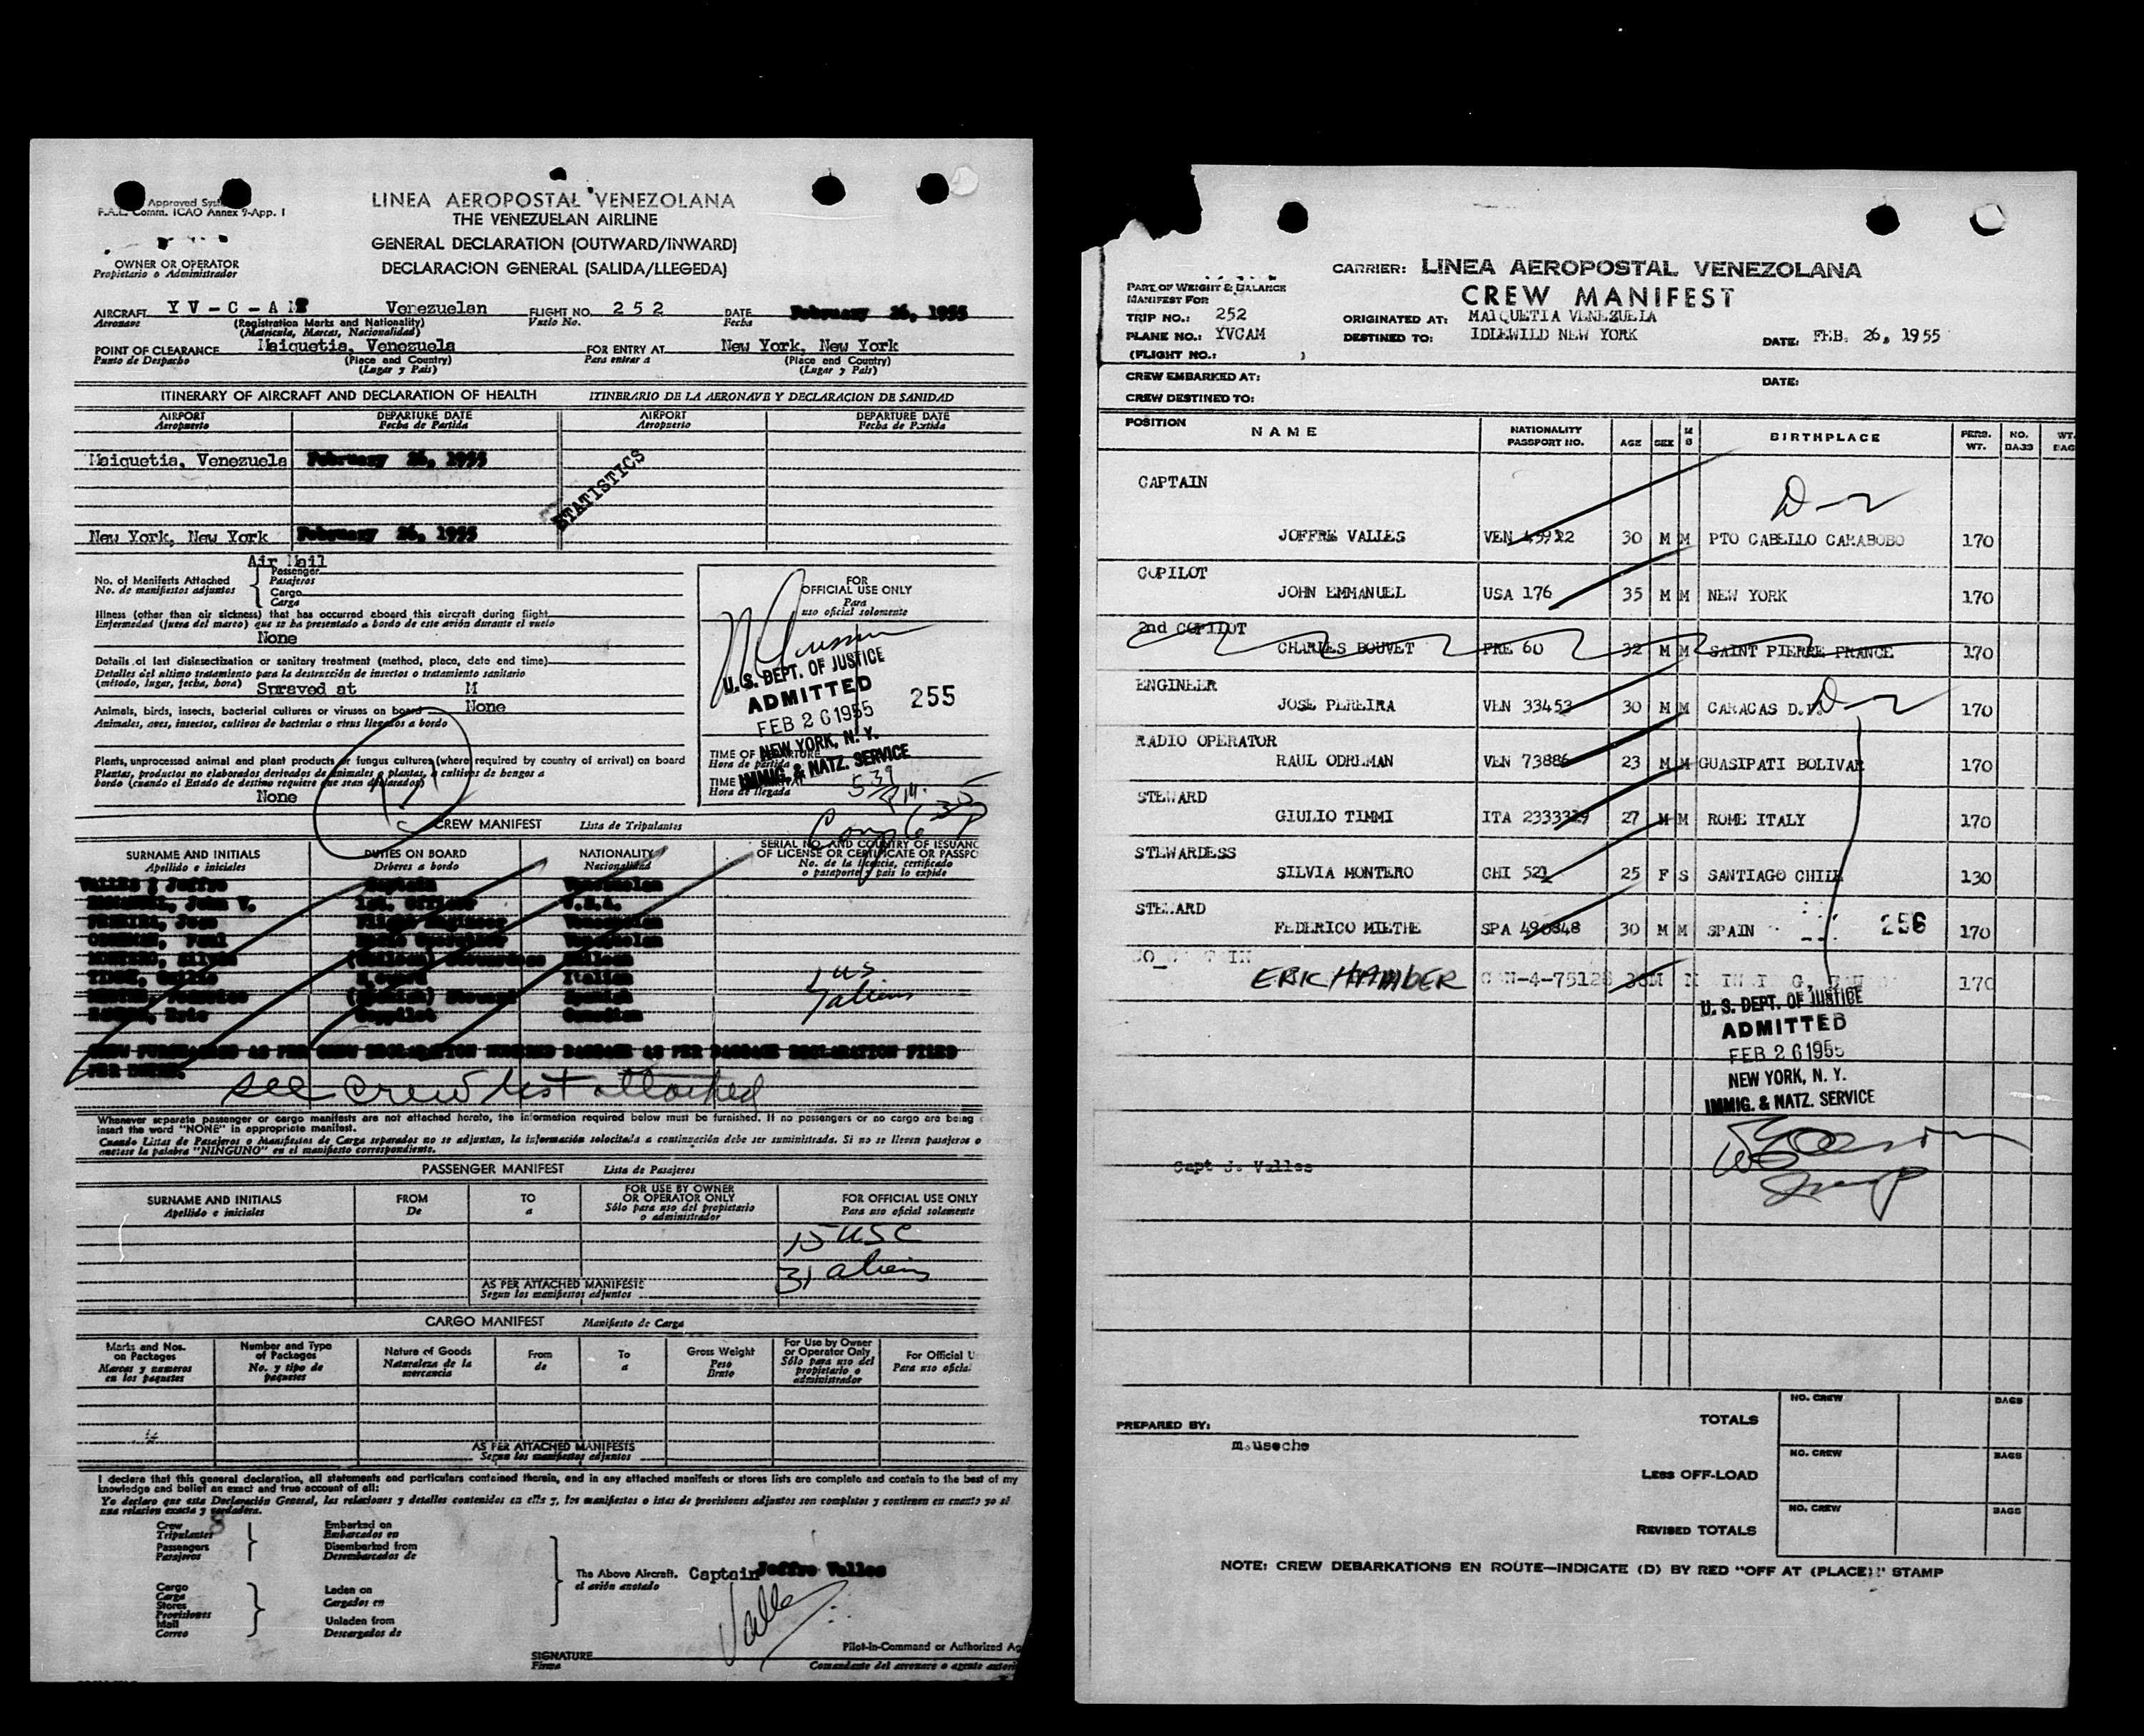 Approved Syst
F.A.L. Comm. ICAO Annex 9-App. I
LINEA AEROPOSTAL VENEZOLANA
THE VENEZUELAN AIRLINE
GENERAL DECLARATION (OUTWARD/INWARD)
DECLARACION GENERAL (SALIDA/LLEGEDA)
OWNER OR OPERATOR
Propietario o Administrador
AIRCRAFT YV-C-AM Venezuelan FLIGHT NO. 252 DATE February 26, 1955
Aeronave (Registration Marks and Nationality) Vuelo No. Fecha
(Matricula, Marcas, Nacionalidad)
POINT OF CLEARANCE Maiquetia, Venezuela FOR ENTRY AT New York, New York
Punto de Despacho (Place and Country) Para entrar a (Place and Country)
(Lugar y Pais) (Lugar y Pais)
ITINERARY OF AIRCRAFT AND DECLARATION OF HEALTH ITINERARIO DE LA AERONAVE Y DECLARACION DE SANIDAD
AIRPORT DEPARTURE DATE AIRPORT DEPARTURE DATE
Aeropuerto Fecha de Partida Aeropuerto Fecha de Partida
Maiquetia, Venezuela February 26, 1955
STATISTICS
New York, New York February 26, 1955
Air Mail
No. of Manifests Attached Passenger
No. de manifiestos adjuntos Pasajeros
Cargo
Carga
Illness (other than air sickness) that has occurred aboard this aircraft during flight
Enfermedad (fuera del mareo) que se ha presentado a bordo de este avión durante el vuelo
None
Details of last disinsectization or sanitary treatment (method, place, date and time)
Detalles del ultimo tratamiento para la destrucción de insectos o tratamiento sanitario
(método, lugar, fecha, hora) Sprayed at M
Animals, birds, insects, bacterial cultures or viruses on board None
Animales, aves, insectos, cultivos de bacterias o virus llegados a bordo
Plants, unprocessed animal and plant products or fungus cultures (where required by country of arrival) on board
Plantas, productos no elaborados derivados de animales o plantas, o cultivos de hongos a
bordo (cuando el Estado de destino requiere que sean declarados)
None
FOR
OFFICIAL USE ONLY
Para
uso oficial solomente
U.S. DEPT. OF JUSTICE
ADMITTED 255
FEB 26 1955
NEW YORK, N.Y.
IMMIG. & NATZ. SERVICE
TIME OF DEPARTURE
Hora de partida
TIME
Hora de llegada
539 PM.
CREW MANIFEST Lista de Tripulantes
SURNAME AND INITIALS DUTIES ON BOARD NATIONALITY SERIAL NO. AND COUNTRY OF ISSUANC
OF LICENSE OR CERTIFICATE OR PASSPO
Apellido e iniciales Deberes a bordo Nacionalidad No. de la licencia, certificado
o pasaporte y pais lo expide
Valles, Joffre Captain Venezuelan
EMMANUEL, John V. 1st. Officer U.S.A.
PEREIRA, Jose Flight Engineer Venezuelan
1 US
7 aliens
see crew list attached
Whenever separate passenger or cargo manifests are not attached hereto, the information required below must be furnished. If no passengers or no cargo are being
insert the word "NONE" in appropriate manifest.
Cuando Listas de Pasajeros o Manifiestos de Carga separados no se adjuntan, la información solocitada a continuación debe ser suministrada. Si no se lleven pasajeros o
anotese la palabra "NINGUNO" en el manifiesto correspondiente.
PASSENGER MANIFEST Lista de Pasajeros
SURNAME AND INITIALS FROM TO FOR USE BY OWNER OR OPERATOR ONLY FOR OFFICIAL USE ONLY
Apellido e iniciales De a Sólo para uso del propietario o administrador Para uso oficial solamente
15 USC
31 aliens
AS PER ATTACHED MANIFESTS
Segun los manifiestos adjuntos
CARGO MANIFEST Manifiesto de Carga
Marks and Nos. on Packages Number and Type of Packages Nature of Goods From To Gross Weight For Use by Owner or Operator Only For Official U
Marcas y numeros en los paquetes No. y tipo de paquetes Naturaleza de la mercancia de a Peso Bruto Sólo para uso del propietario o administrador Para uso oficial
AS PER ATTACHED MANIFESTS
Segun los manifiestos adjuntos
I declare that this general declaration, all statements and particulars contained therein, and in any attached manifests or stores lists are complete and contain to the best of my
knowledge and belief an exact and true account of all:
Yo declaro que esta Declaración General, las relaciones y detalles contenidos en ella y, los manifiestos o istas de provisiones adjuntos son completos y contienen en cuanto yo sé
una relacion exacta y verdadera.
Crew 8 Embarked on
Tripulantes Embarcados en
Passengers Disembarked from
Pasajeros Desembarcados de
The Above Aircraft. Captain Joffre Valles
el avión anotado
Cargo Laden on
Carga Cargados en
Stores
Provisiones Unladen from
Mail Descargados de
Correo
Valles
SIGNATURE Pilot-in-Command or Authorized Ag
Firma Comandante del aeronave o agente autori
CARRIER: LINEA AEROPOSTAL VENEZOLANA
CREW MANIFEST
PART OF WEIGHT & BALANCE
MANIFEST FOR
TRIP NO.: 252 ORIGINATED AT: MAIQUETIA VENEZUELA
PLANE NO.: YVCAM DESTINED TO: IDLEWILD NEW YORK DATE: FEB. 26, 1955
(FLIGHT NO.: )
CREW EMBARKED AT: DATE:
CREW DESTINED TO:
POSITION NAME NATIONALITY PASSPORT NO. AGE SEX M S BIRTHPLACE PERS. WT. NO. BA-33 WT. BAG
CAPTAIN
D-2
JOFFRE VALLES VEN 45922 30 M M PTO CABELLO CARABOBO 170
COPILOT
JOHN EMMANUEL USA 176 35 M M NEW YORK 170
2nd COPILOT
CHARLES BOUVET FRE 60 32 M M SAINT PIERRE FRANCE 170
ENGINEER
JOSE PEREIRA VEN 33453 30 M M CARACAS D.F. D-2 170
RADIO OPERATOR
RAUL ODREMAN VEN 73886 23 M M GUASIPATI BOLIVAR 170
STEWARD
GIULIO TIMMI ITA 2333329 27 M M ROME ITALY 170
STEWARDESS
SILVIA MONTERO CHI 521 25 F S SANTIAGO CHILE 130
STEWARD
FEDERICO MIETHE SPA 490848 30 M M SPAIN 256 170
ERIC HAMBER 170
U. S. DEPT. OF JUSTICE
ADMITTED
FEB 26 1955
NEW YORK, N. Y.
IMMIG. & NATZ. SERVICE
Capt J. Valles
PREPARED BY:
m.useche
TOTALS NO. CREW BAGS
LESS OFF-LOAD NO. CREW BAGS
REVISED TOTALS NO. CREW BAGS
NOTE: CREW DEBARKATIONS EN ROUTE—INDICATE (D) BY RED "OFF AT (PLACE)" STAMP